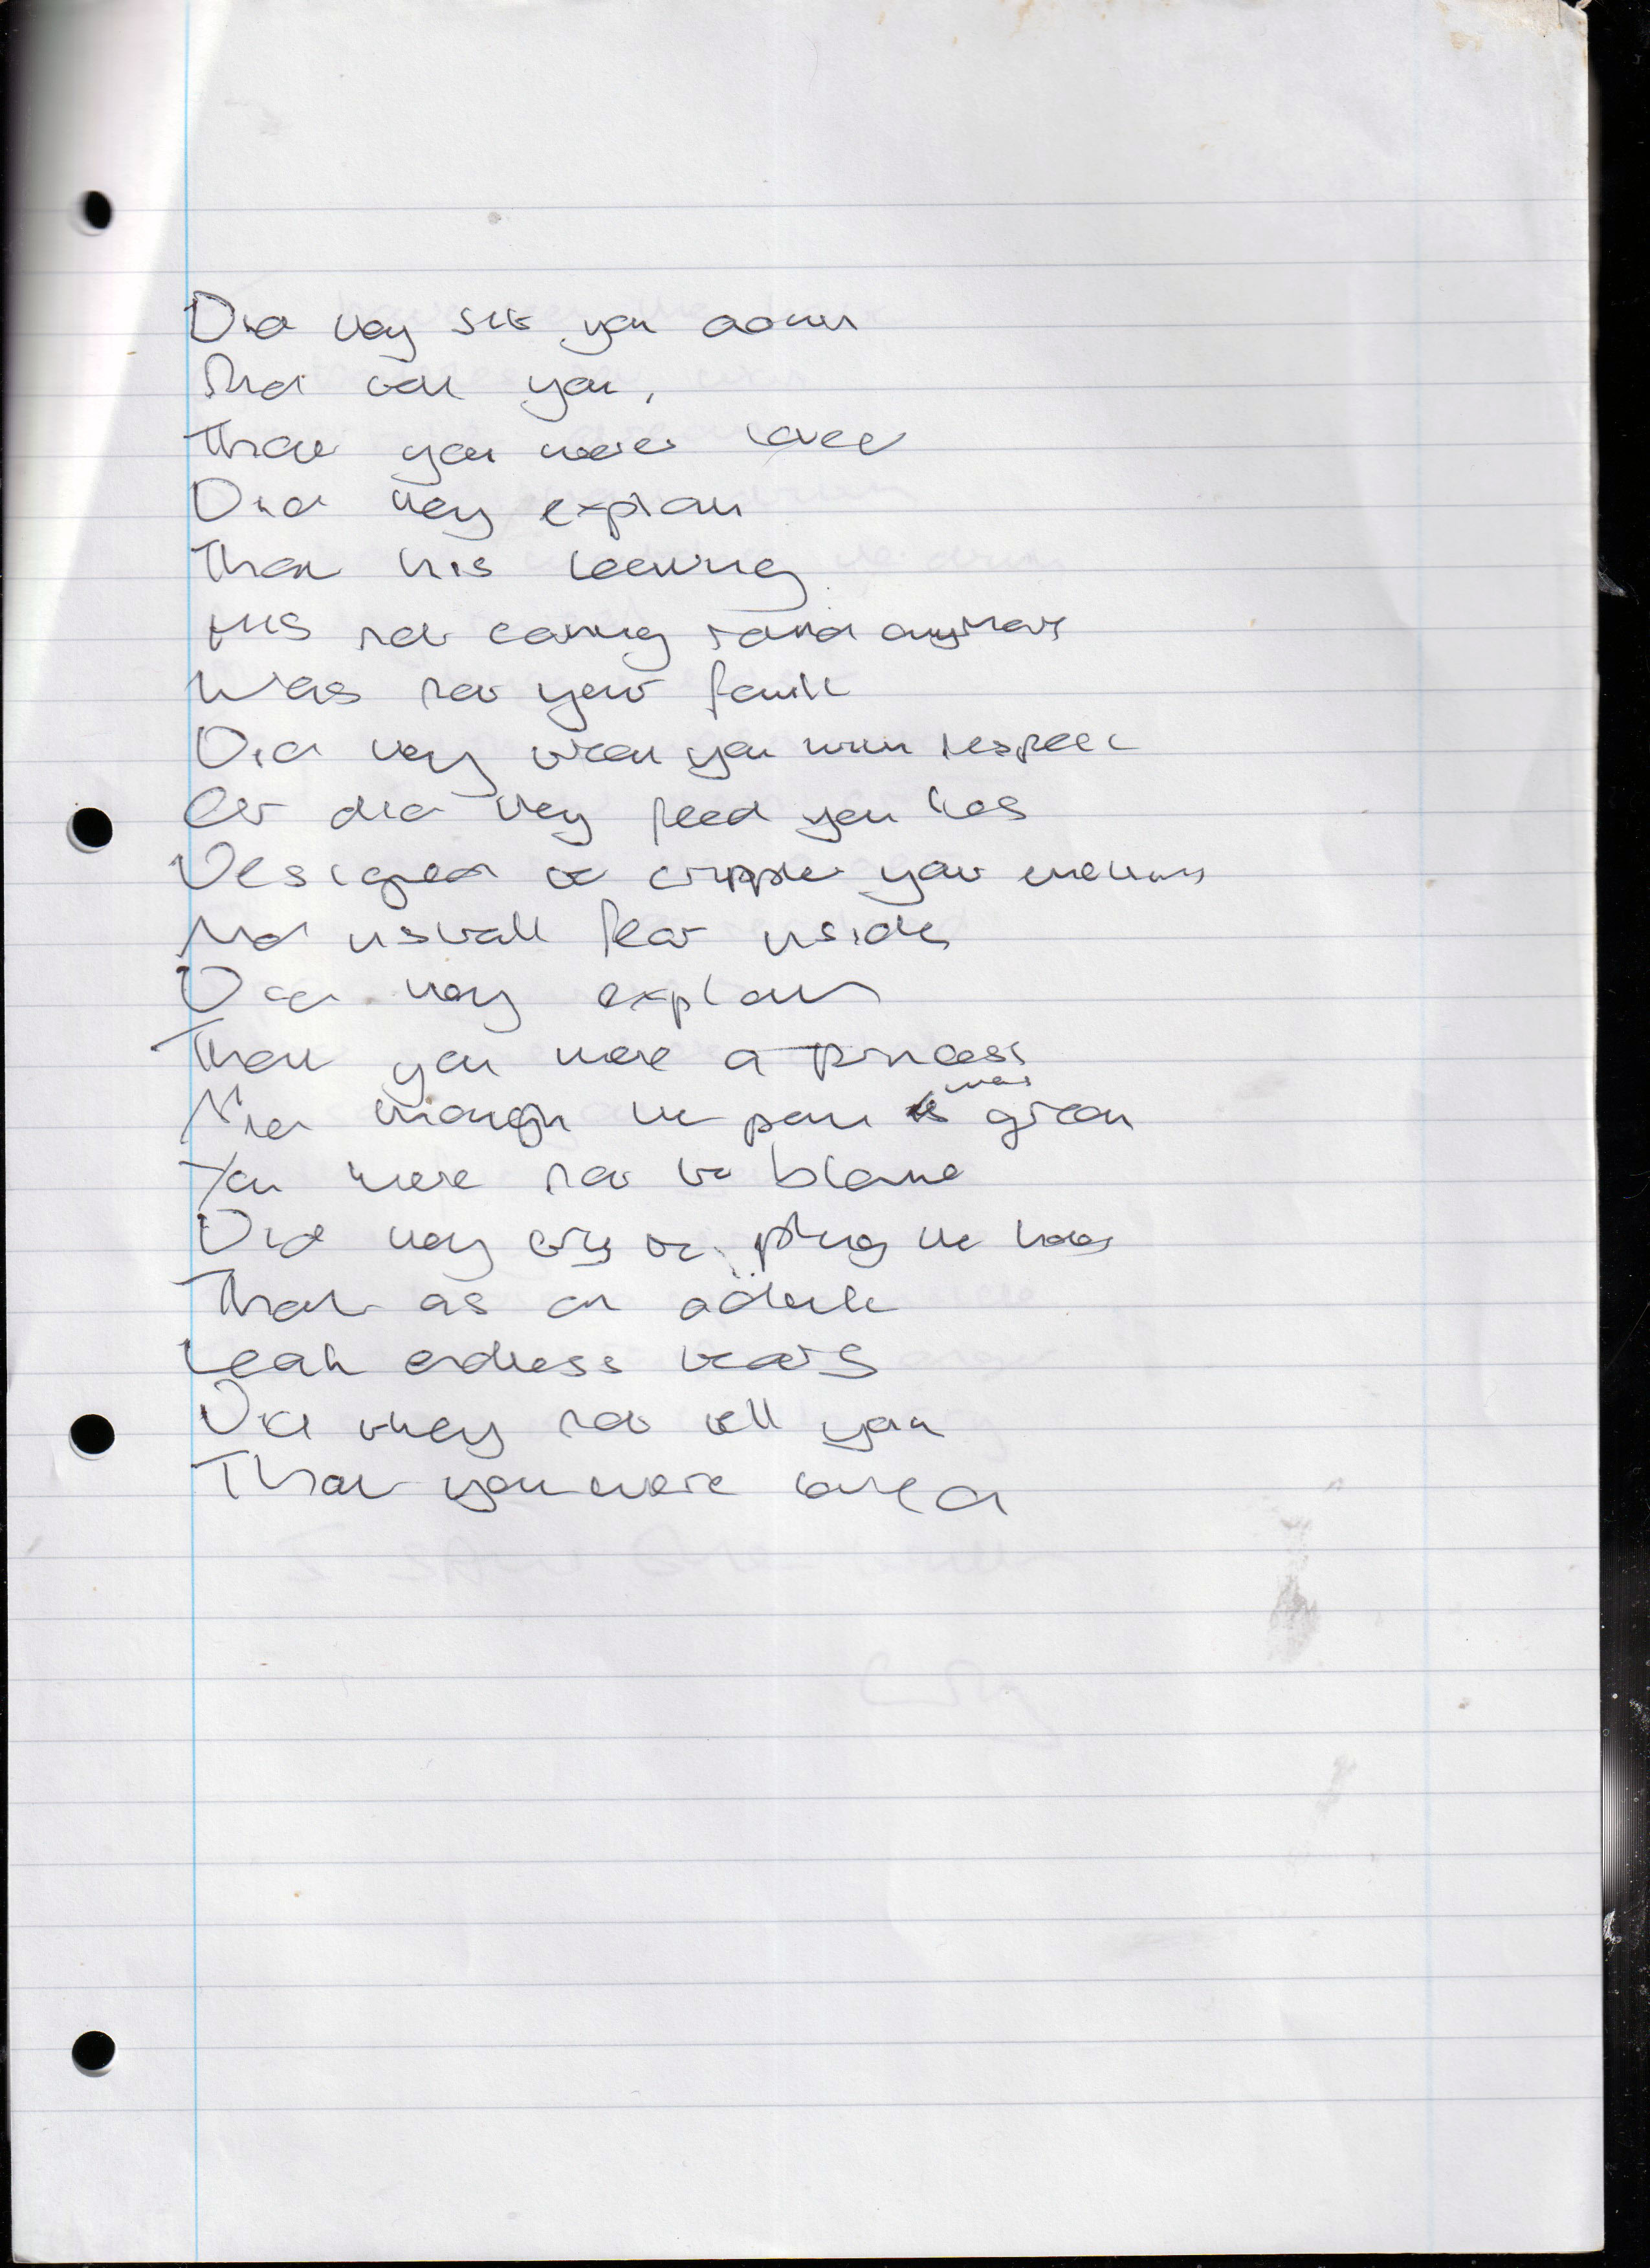 Did they sit you down
And tell you,
That you were loved
Did they explain
That his leaving
His not coming round anymore
Was not your fault
Did they treat you with respect
Or did they feed you lies
Designed to cripple your emotions
And install fear inside
Did they explain
That you were a princess
And though the pain was great
You were not to blame
Did they try to plug the holes
That as an adult
Leak endless tears
Did they not tell you
That you were loved